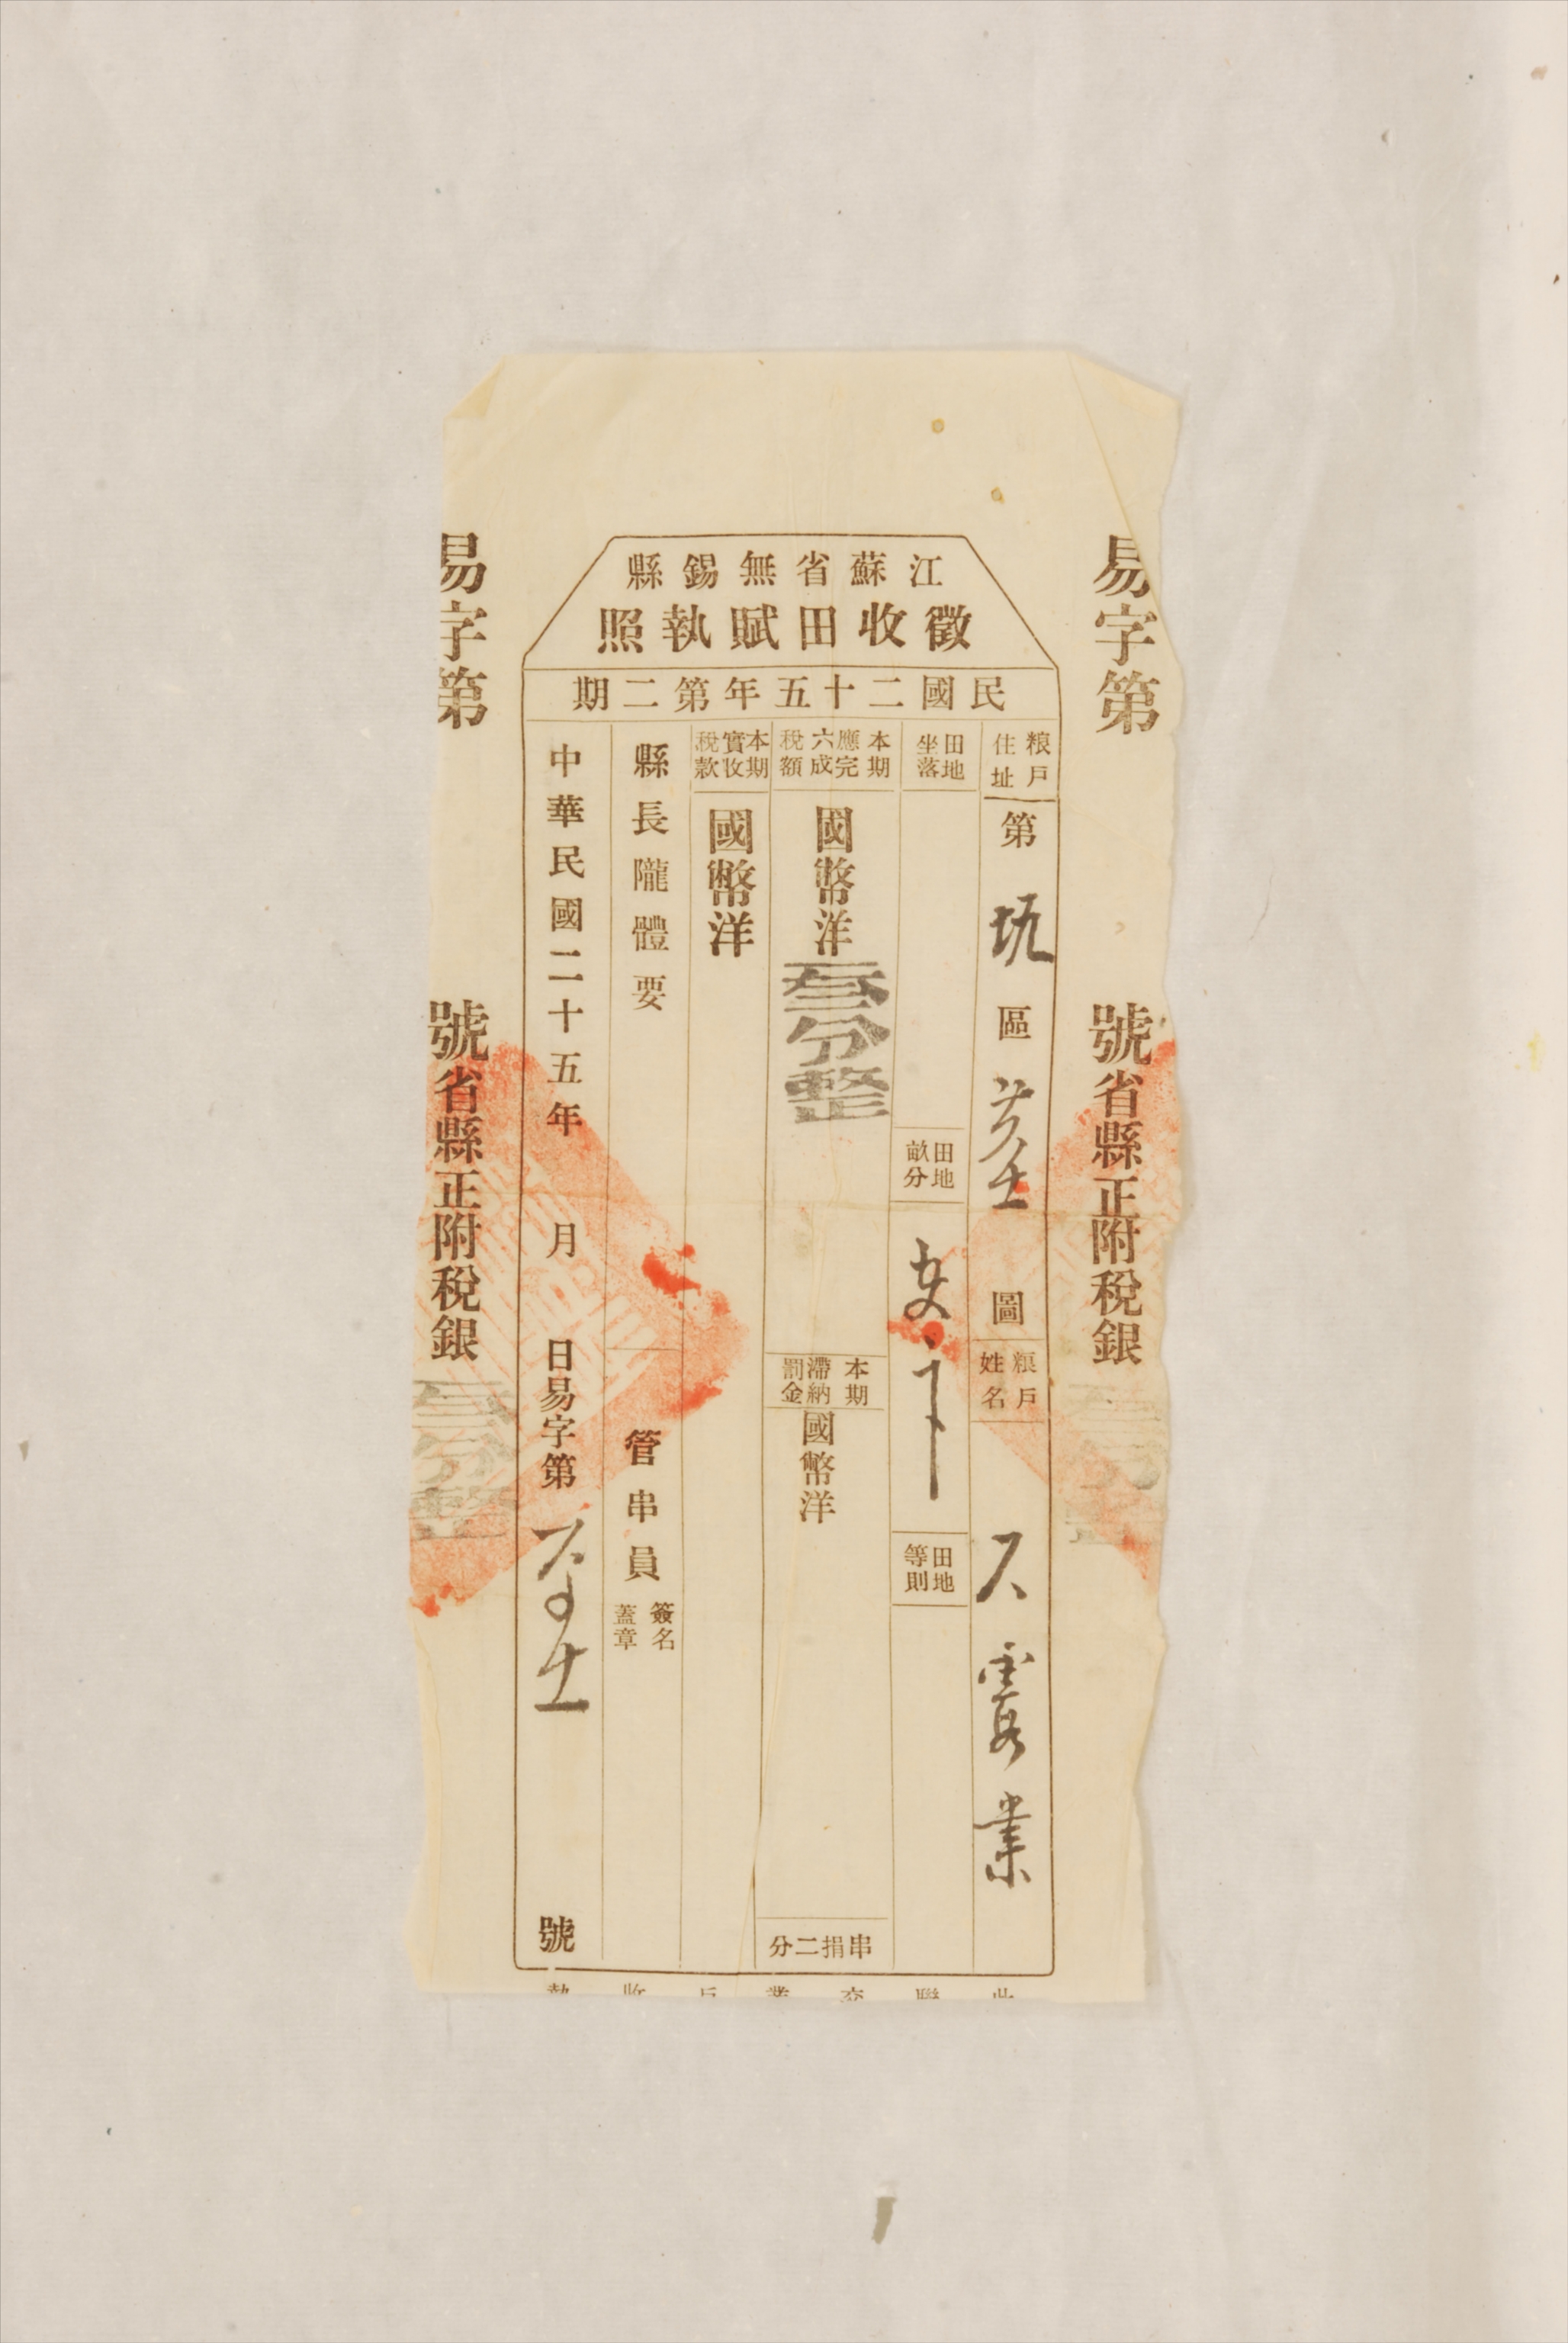 江蘇省無錫縣
徵收田賦執照
民國二十五年第二期
易字第
號省縣正附稅銀
粮戶住址
第
區
圖
粮戶姓名
業
田地坐落
田地畝分
田地等則
本期應完六成稅額
國幣洋叁分整
本期滯納罰金
國幣洋
串捐二分
本期實收稅款
國幣洋
縣長隴體要
管串員
簽名蓋章
中華民國二十五年
月
日易字第
號
易字第
號省縣正附稅銀叁分整
此聯交業戶收執